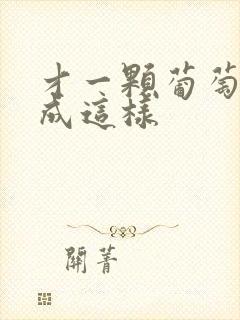 才一顆葡萄
成這樣
關菁